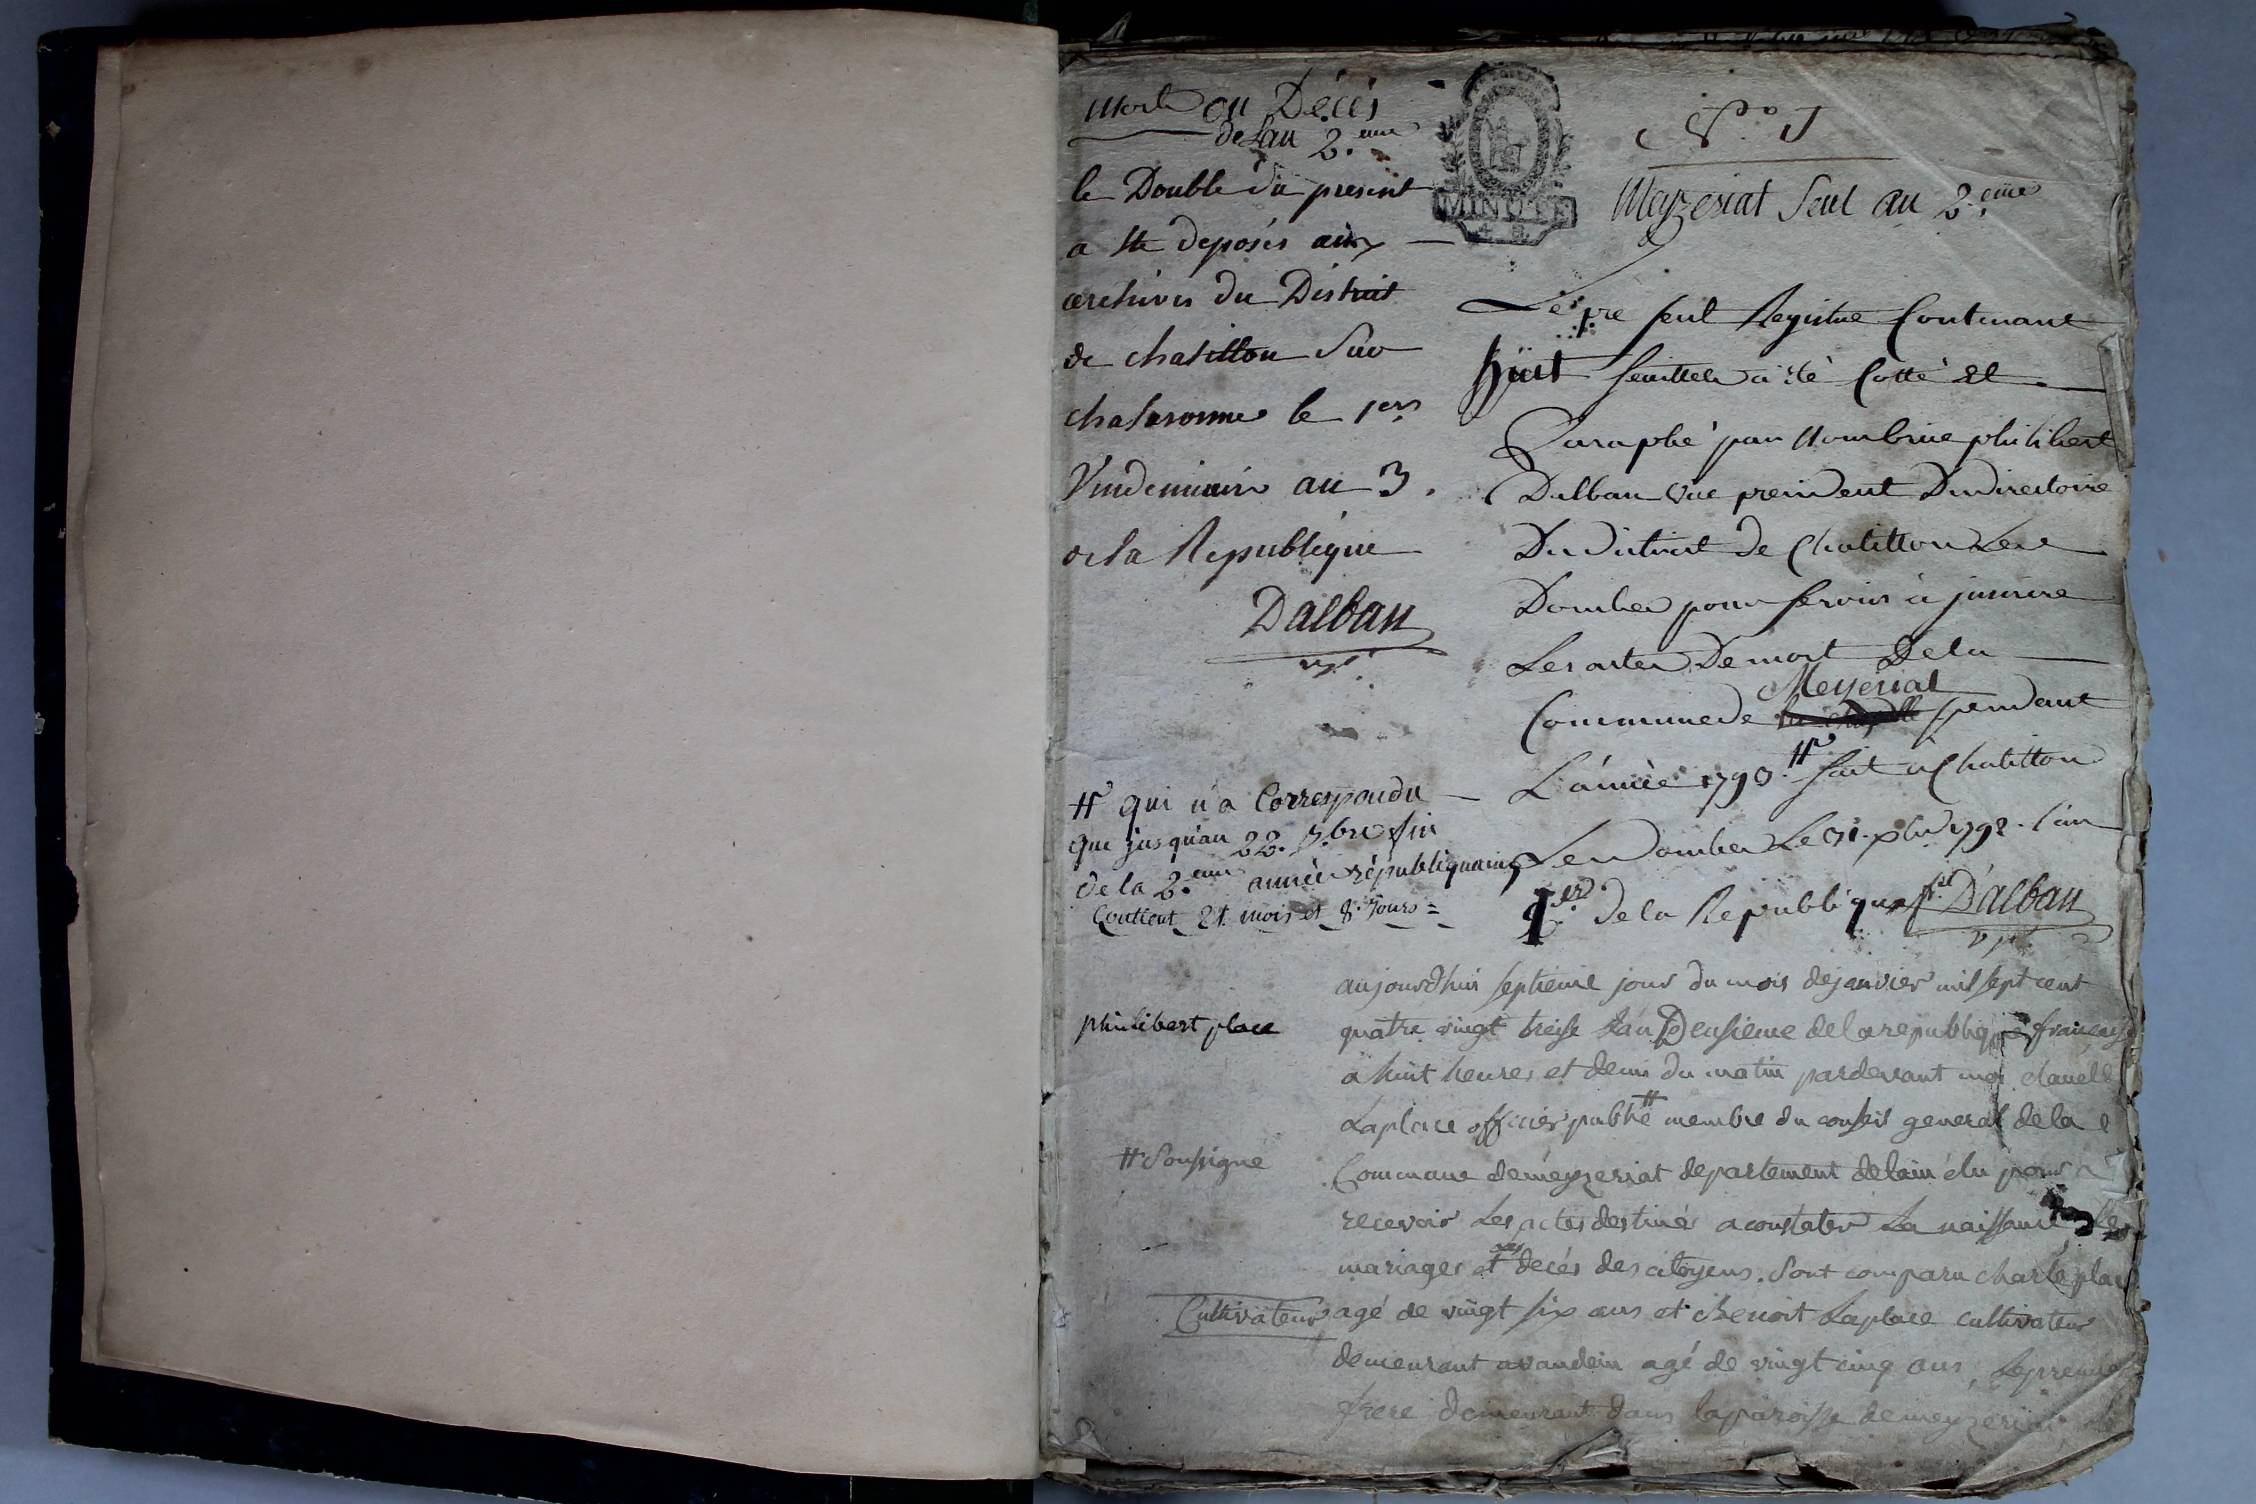 Morts ou Décès
de Lan 2.eme
le Double du present
a ete deposés aux
archives du District
de chatillon Sur
chalaronne le 1ers
Vindemiaire an 3.
de la Republique
Dalban
# qui n'a Correspondu
que jusqu'au 22. 7.bre fin
de la 2.eme année républiquaine
Contient 21 mois et 8. Jours =
philibert place
# Soussigne
Cultivateur
MINUTE
N.o 1
Meyzeriat Seul an 2.eme
Le present Registre Contenant
huit feuillets a été Cotté et
Paraphé par philibert
Dalban vice president Du directoire
Du district de Chatillon Les
Dombes pour servir à inscrire
Les actes De mort De la
Meyseriat
Commune de la chapelle pendant
L'année 1793. # fait a Chatillon
Les Dombes Le 31. xbre 1792. l'an
1.er de la Republique Dalban
v.p.
aujourdhui septieme jour du mois de janvier mil sept cent
quatre vingt treise Lan Deusieme de la republique française
a huit heures et demi du matin pardevant moi claude
Laplace officier public # membre du conseil general de la
Commune de meyzeriat departement de lain élu pour
recevoir Les actes destinés a constater La naissance Les
mariages et decés des citoyens. Sont comparu charle place
agé de vingt six ans et Benoit Laplace cultivateur
demeurant a vandein agé de vingt cinq ans, Le premier
frere demeurant dans la paroisse de meyzeriat